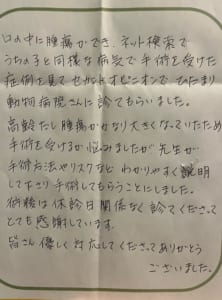 口の中に腫瘍ができ、ネット検索で
うちの子と同様な病気で手術を受けた
症例を見てセカンドオピニオンでひだまり
動物病院さんに診てもらいました。
高齢だし腫瘍がかなり大きくなっていたため
手術を受けるか悩みましたが先生が
手術方法やリスクなどわかりやすく説明
して下さり手術してもらうことにしました。
術後は休診日関係なく診てくださって
とても感謝しています。
皆さん優しく対応してくださってありがとう
ございました。